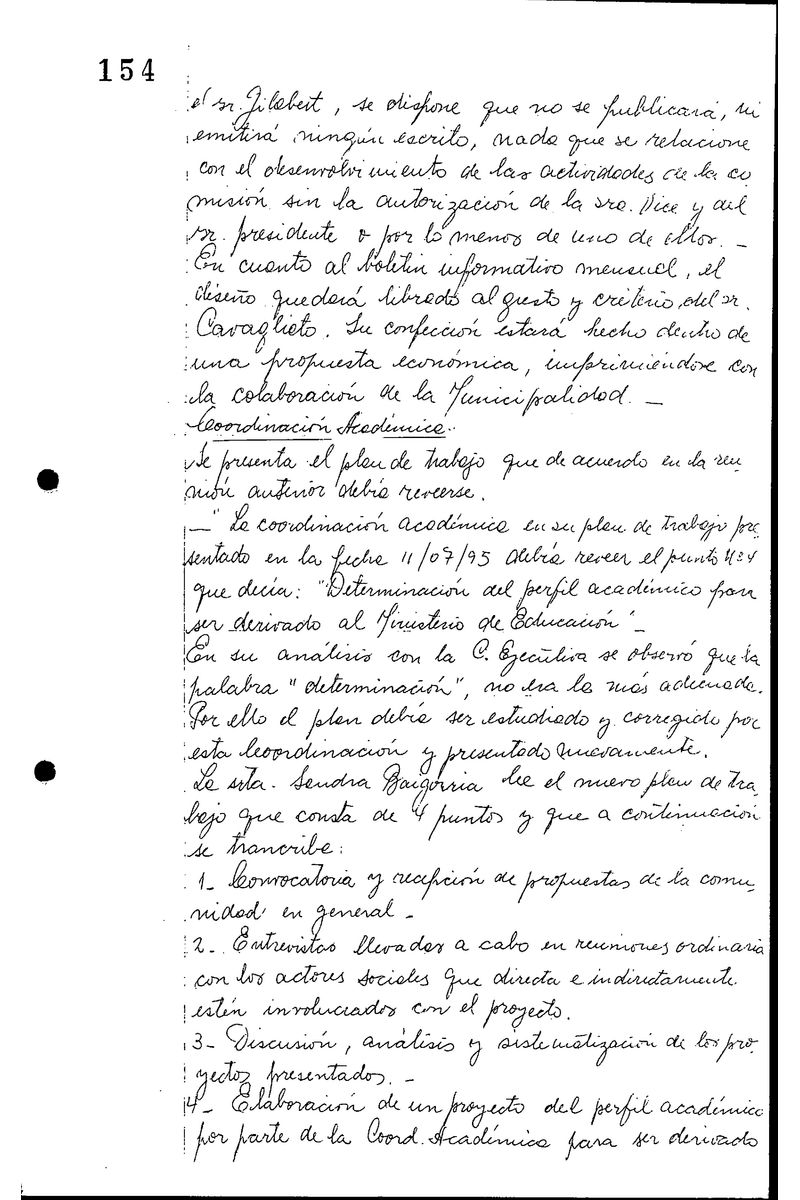 154
el sr. Gilabert, se dispone que no se publicará, ni
emitirá ningún escrito, nada que se relacione
con el desenvolvimiento de las actividades de la co
misión sin la autorización de la sra. Vice y del
sr. presidente o por lo menos de uno de ellos. –
En cuanto al boletín informativo mensual, el
diseño quedará librado al gusto y criterio del sr.
Cavaglieto. Su confección estará hecho dentro de
una propuesta económica, imprimiéndose con
la colaboración de la Municipalidad. –
Coordinación Académica.
Se presenta el plan de trabajo que de acuerdo en la reu
nión anterior debía reveerse.
– "La coordinación académica en su plan de trabajo pre
sentado en la fecha 11/07/95 debía reveer el punto Nº4
que decía: "Determinación del perfil académico para
ser derivado al Ministerio de Educación" –
En su análisis con la C. Ejecutiva se observó que la
palabra "determinación", no era la más adecuada.
Por ello el plan debía ser estudiado y corregido por
esta Coordinación y presentado nuevamente.
La srta. Sandra Baigorria lee el nuevo plan de tra
bajo que consta de 4 puntos y que a continuación
se trancribe:
1– Convocatoria y recepción de propuestas de la comu
nidad en general –
2– Entrevistas llevadas a cabo en reuniones ordinaria
con los actores sociales que directa e indirectamente
estén involucrados con el proyecto.
3– Discusión, análisis y sistematización de los pro
yectos presentados. –
4– Elaboración de un proyecto del perfil académico
por parte de la Coord. Académica para ser derivado